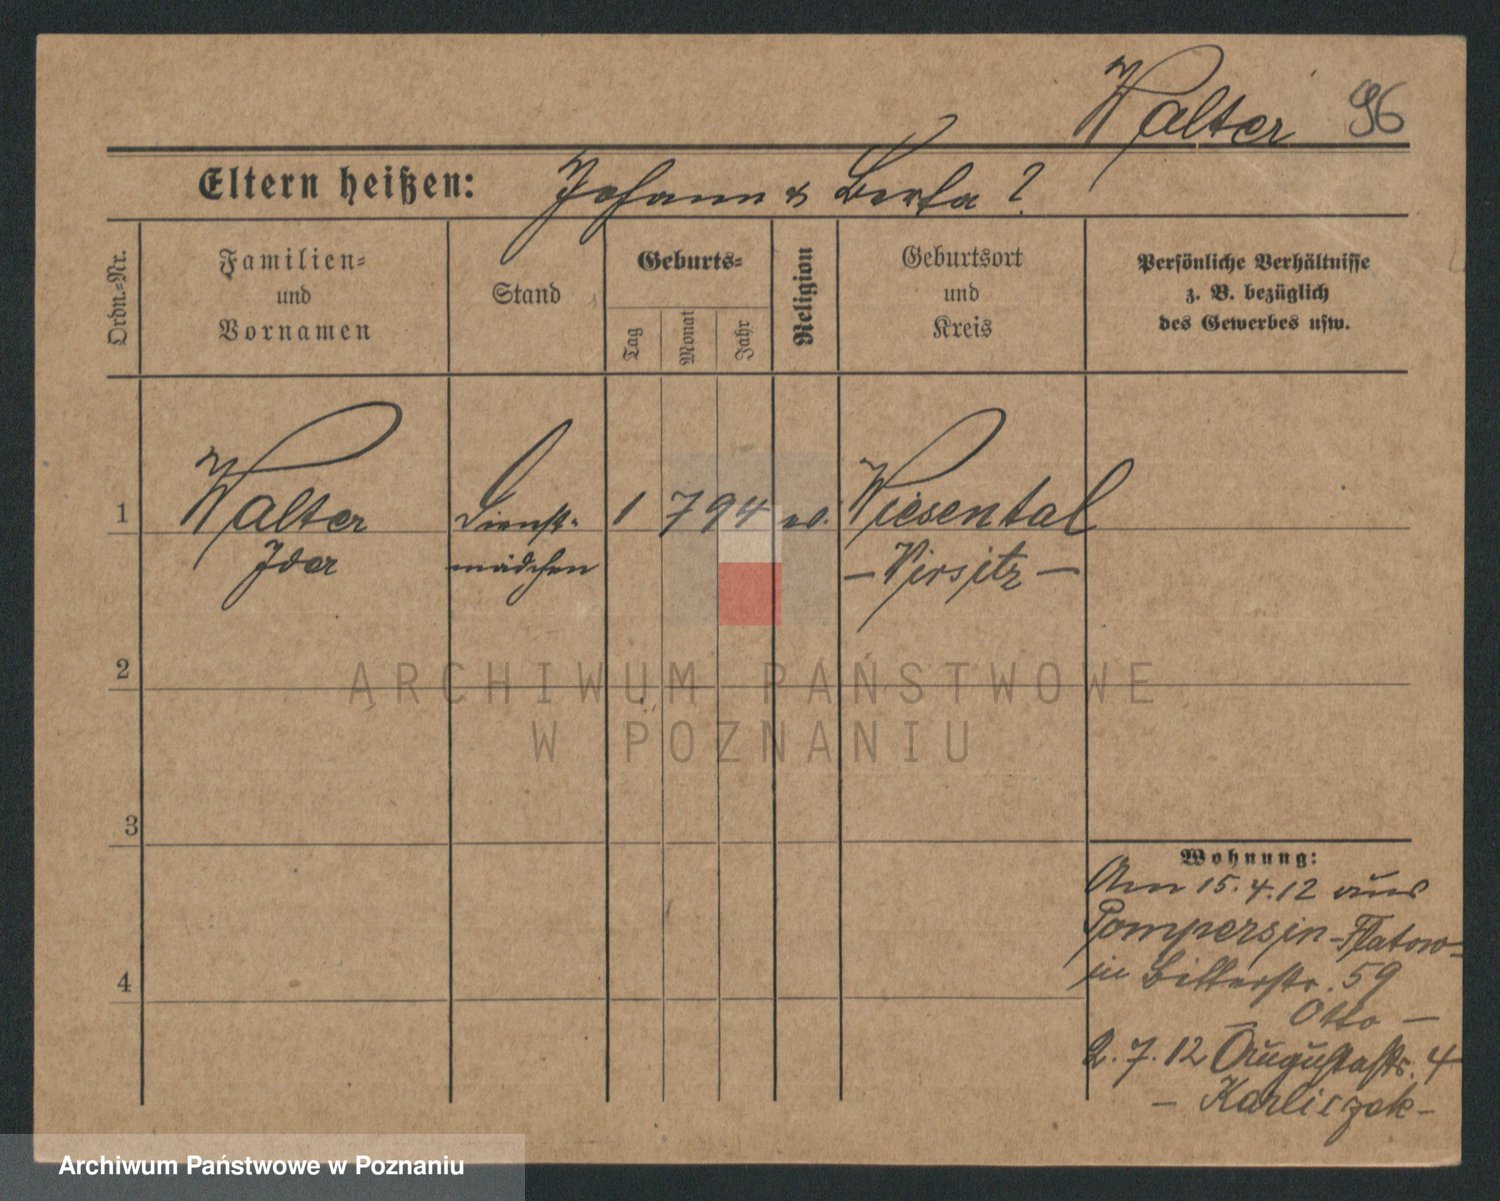 Walter 96
Eltern heißen: Johann & Berta ?
Ordn.-Nr.
Familien-
und
Vornamen
Stand
Geburts-
Tag
Monat
Jahr
Religion
Geburtsort
und
Kreis
Persönliche Verhältnisse
z. B. bezüglich
des Gewerbes usw.
1 Walter Dienst- 1 7 94 ev. Wiesental
Ida mädchen – Wirsitz –
2
3
4
Wohnung:
Am 15.4.12 aus
Pompersin - Flatow -
in Bitterstr. 59
– Otto –
2.7.12 Augustastr. 4
– Karliczak –
ARCHIWUM PAŃSTWOWE
W POZNANIU
Archiwum Państwowe w Poznaniu